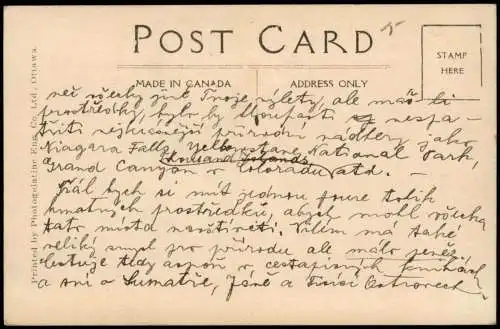 POST CARD
STAMP
HERE
MADE IN CANADA
ADDRESS ONLY
Printed by Photogelatine Eng. Co. Ltd., Ottawa.
než všecky jiné Tvoje výlety, ale máš-li
prostředky, bylo by hloupostí nespa-
třiti nejkrásnější přírodní nádhery jako
Niagara Falls, Yellowstone National Park,
Thousand Islands
Grand Canyon v Coloradu atd. –
Přál bych si míti jednou jenom tolik
hmotných prostředků, abych mohl všecka
tato místa navštíviti. Vilém má také
veliký smysl pro přírodu ale málo peněz.
Cestuje tedy aspoň v cestopisných knihách
a sní o Sumatře, Jávě a Ostrovech